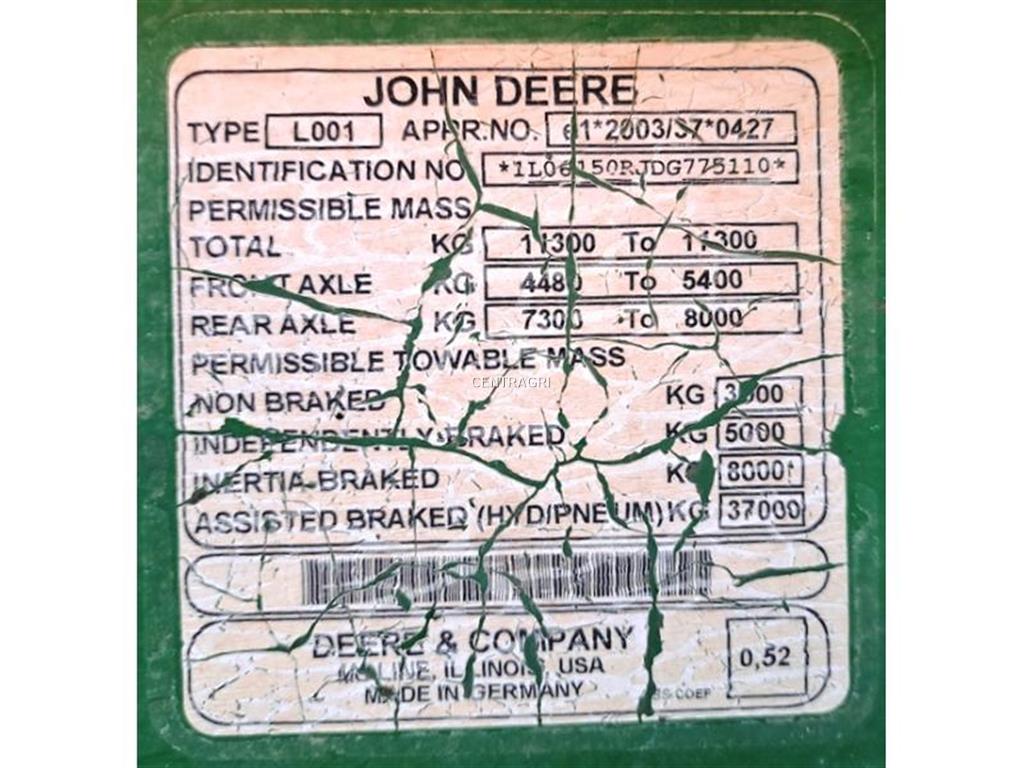 JOHN DEERE
TYPE L001 APPR.NO. e1*2003/37*0427
IDENTIFICATION NO. *1L06150RJDG775110*
PERMISSIBLE MASS
TOTAL KG 11300 To 11300
FRONT AXLE KG 4480 To 5400
REAR AXLE KG 7300 To 8000
PERMISSIBLE TOWABLE MASS
CENTRAGRI
NON BRAKED KG 3000
INDEPENDENTLY BRAKED KG 5000
INERTIA-BRAKED KG 8000
ASSISTED BRAKED (HYD/PNEUM) KG 37000
DEERE & COMPANY
MOLINE, ILLINOIS, USA
MADE IN GERMANY
0,52